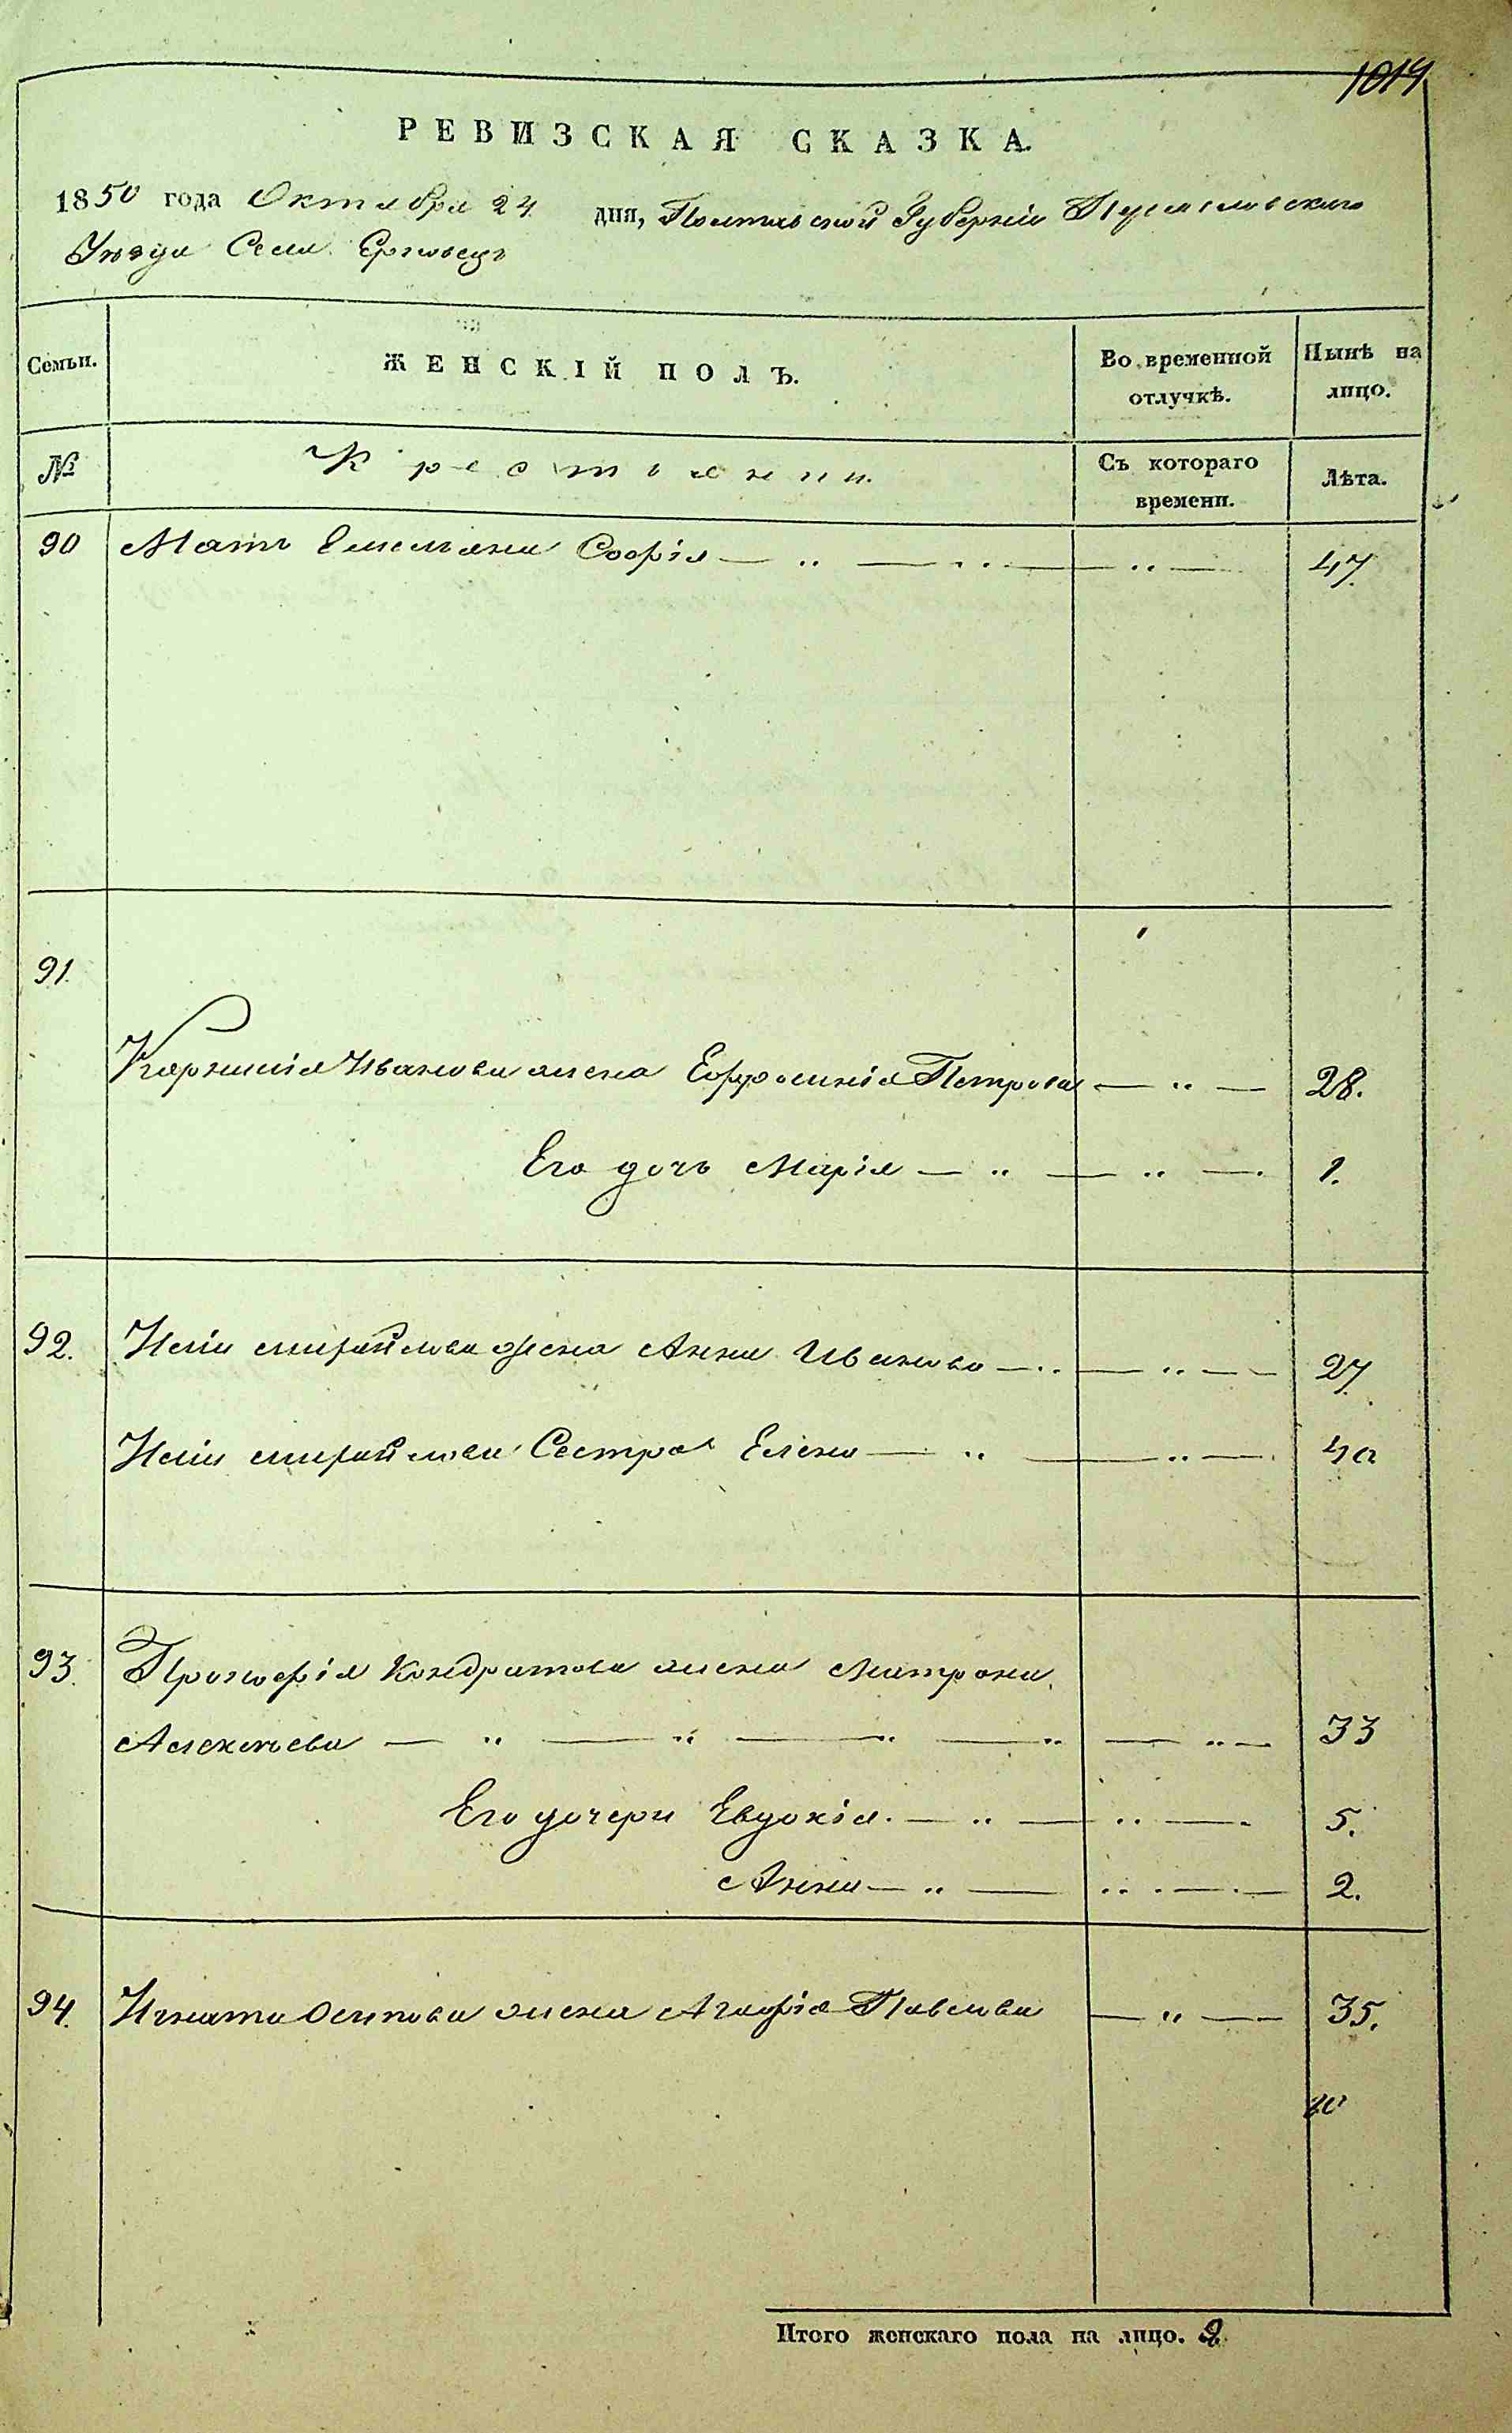 1014
РЕВИЗСКАЯ СКАЗКА.
1850 года Октября 24 дня, Полтавской Губерніи Переяславскаго
Уѣзда Села Ерковецъ
Семьи. ЖЕНСКІЙ ПОЛЪ. Во временной отлучкѣ. Нынѣ на лицо.
№ Крестьянки. Съ котораго времени. Лѣта.
90 Мать Емельяна Софія — " — " — " — 47.
91.
Корнилія Иванова жена Ефросинія Петрова — " — 28.
Его дочь Марія — " — " — 1.
92. Иліи Михайлова жена Анна Иванова — " — " — 27.
Иліи Михайлова Сестра Елена — " — " — 40
93. Прокофія Кондратова жена Матрона
Алексѣева — " — " — " — " — " — 33
Его дочери Евдокія. — " — " — 5.
Анна — " — " — 2.
94. Игната Осипова жена Агафія Павлова — " — 35.
Итого женскаго пола на лицо. 9.